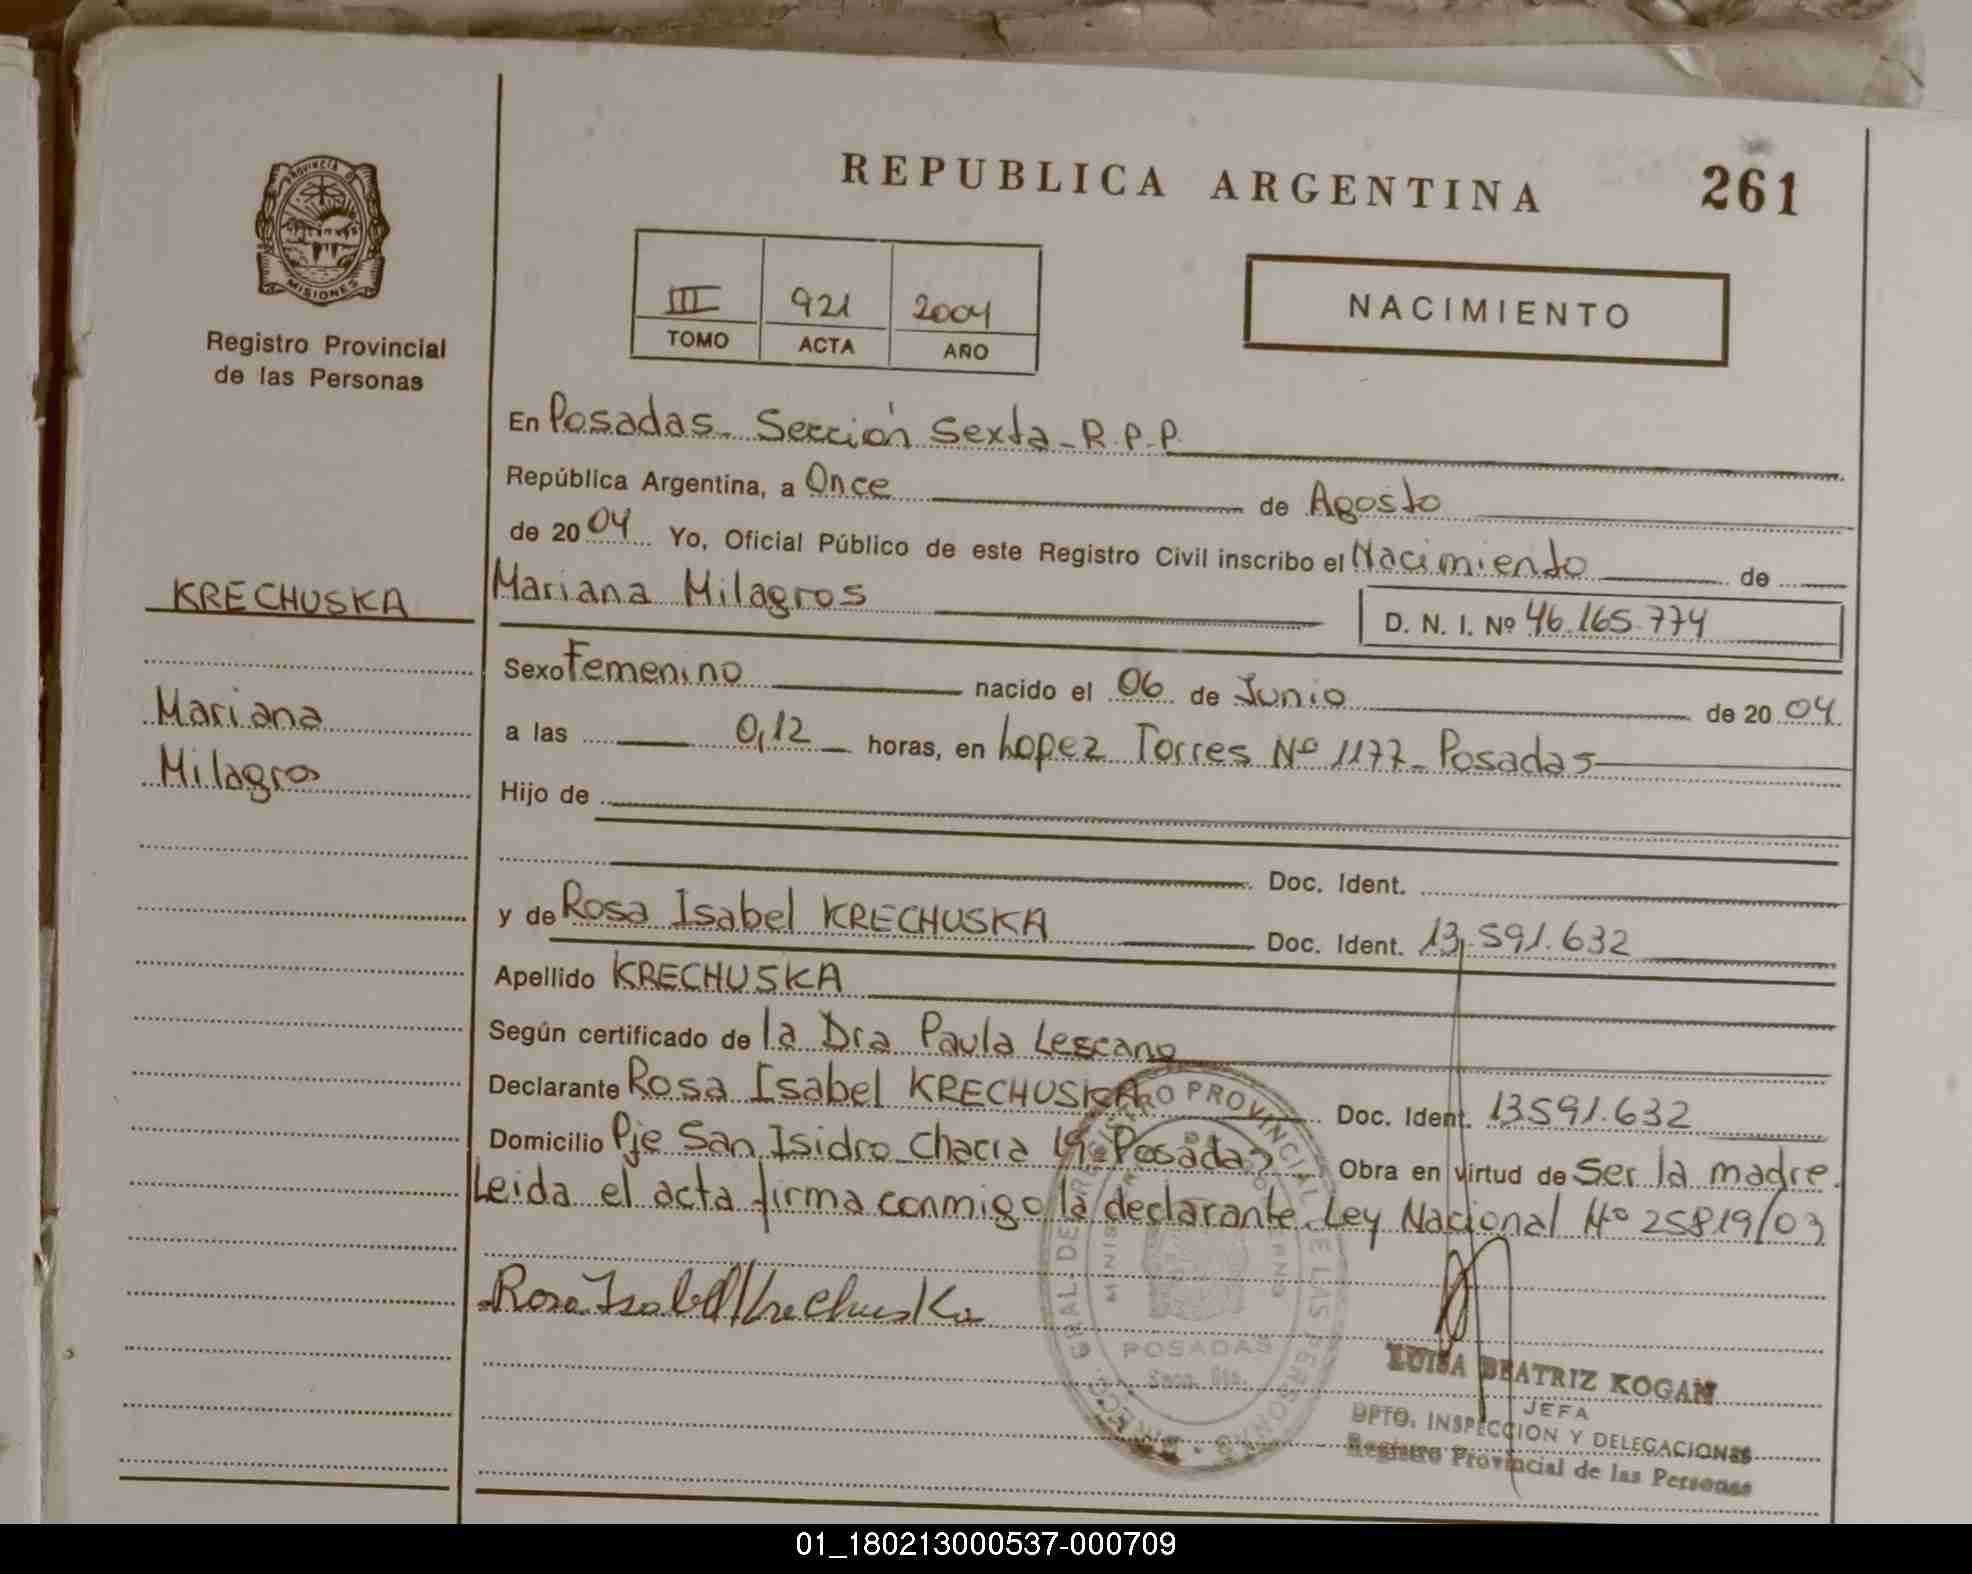 REPUBLICA ARGENTINA 261
PROVINCIA DE
MISIONES
Registro Provincial
de las Personas
III 921 2004
TOMO ACTA AÑO
NACIMIENTO
En Posadas. Sección Sexta - R.P.P.
República Argentina, a Once de Agosto
de 2004 Yo, Oficial Público de este Registro Civil inscribo el Nacimiento de
Mariana Milagros D. N. I. Nº 46.165.774
KRECHUSKA
Mariana
Milagros
Sexo Femenino nacido el 06 de Junio de 2004
a las 0,12 horas, en Lopez Torres Nº 1177 - Posadas
Hijo de
Doc. Ident.
y de Rosa Isabel KRECHUSKA Doc. Ident. 13.591.632
Apellido KRECHUSKA
Según certificado de la Dra Paula Lescano
Declarante Rosa Isabel KRECHUSKA Doc. Ident. 13591.632
Domicilio Pje San Isidro Chacra 19 - Posadas Obra en virtud de Ser la madre.
Leida el acta firma conmigo la declarante. Ley Nacional Nº 25819/03
Rosa Isabel Krechuska
REGISTRO PROVINCIAL DE LAS PERSONAS
POSADAS
LUISA BEATRIZ KOGAN
JEFA
DPTO. INSPECCION Y DELEGACIONES
Registro Provincial de las Personas
01_180213000537-000709